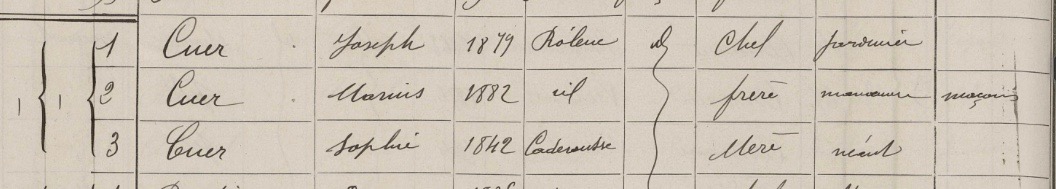 1 Cuer Joseph 1879 Bolène d Chef jardinier
2 Cuer Marius 1882 id frère manœuvre maçon
3 Cuer Sophie 1842 Caderousse Mère néant